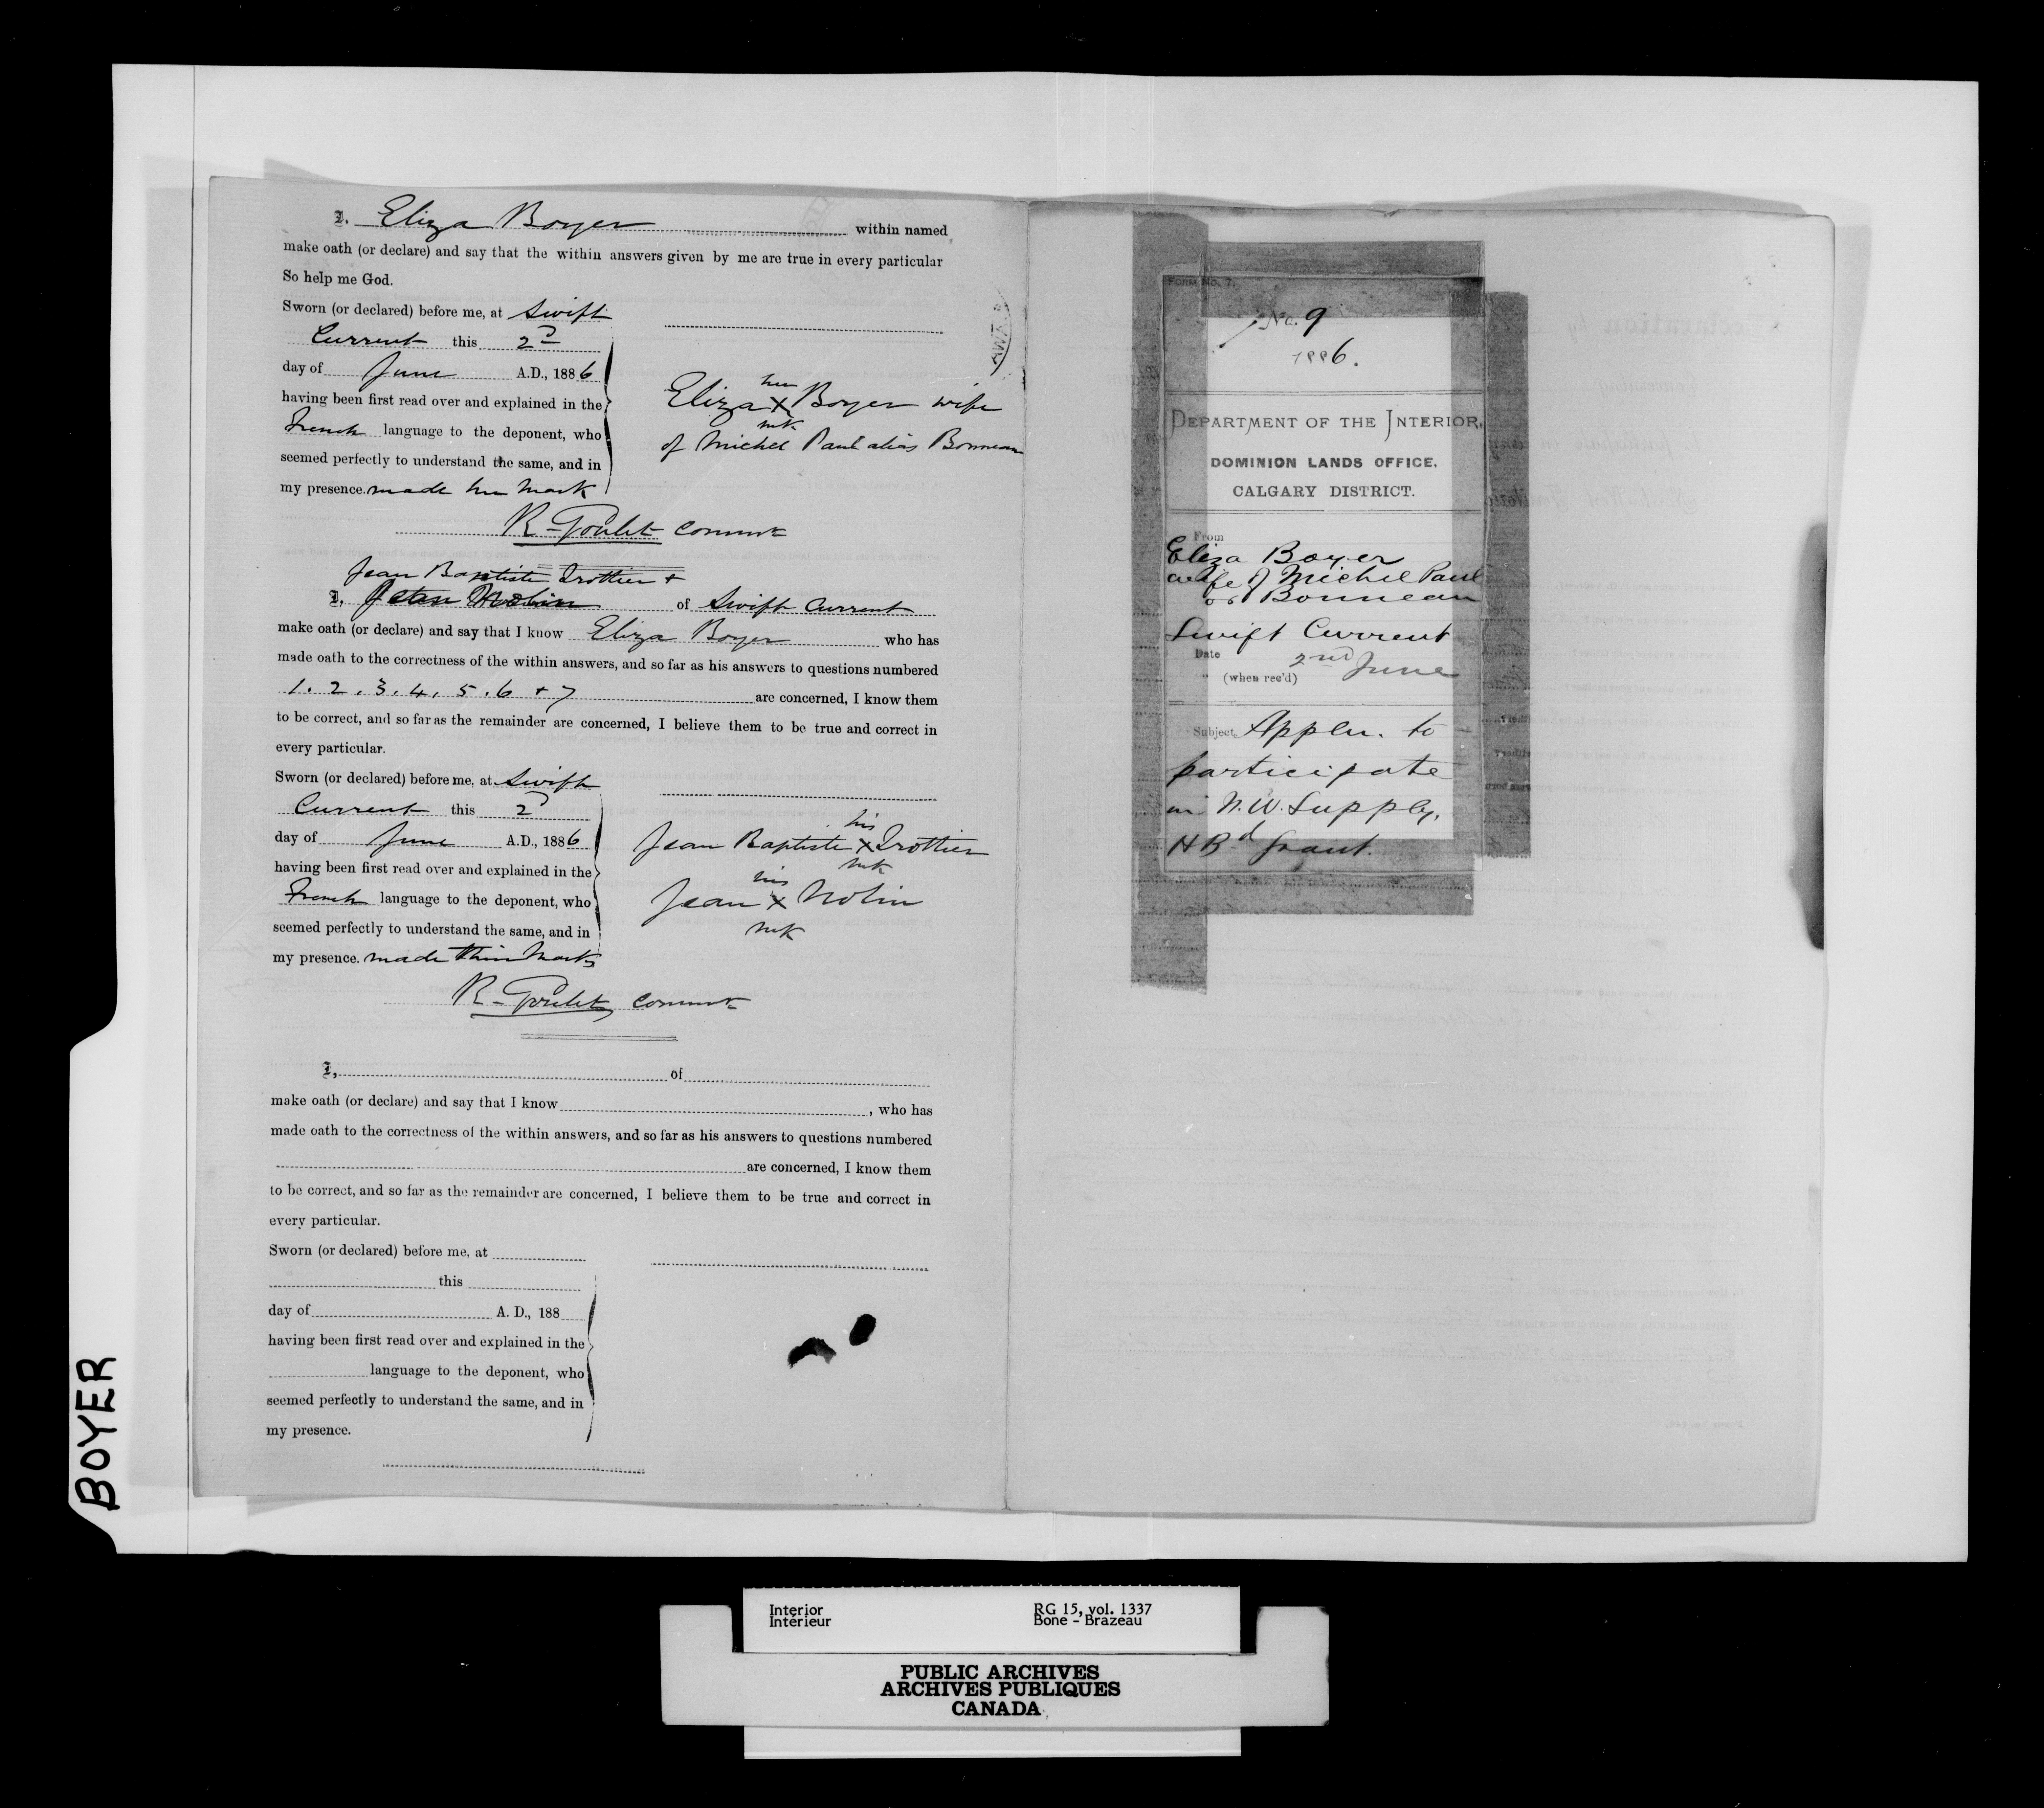 I. Eliza Boyer within named
make oath (or declare) and say that the within answers given by me are true in every particular
So help me God.
Sworn (or declared) before me, at Swift
Current this 2d
day of June A.D., 1886
having been first read over and explained in the
French language to the deponent, who
seemed perfectly to understand the same, and in
my presence. made her mark
her
Eliza X Boyer wife
mk
of Michel Paul alias Bonneau
R. Goulet Commr
Jean Baptiste Trottier +
I, Jean Nolin of Swift Current
make oath (or declare) and say that I know Eliza Boyer who has
made oath to the correctness of the within answers, and so far as his answers to questions numbered
1. 2. 3. 4. 5. 6 + 7 are concerned, I know them
to be correct, and so far as the remainder are concerned, I believe them to be true and correct in
every particular.
Sworn (or declared) before me, at Swift
Current this 2d
day of June A.D., 1886
having been first read over and explained in the
French language to the deponent, who
seemed perfectly to understand the same, and in
my presence. made their marks
his
Jean Baptiste X Trottier
mk
his
Jean X Nolin
mk
R. Goulet Commr
I, of
make oath (or declare) and say that I know , who has
made oath to the correctness of the within answers, and so far as his answers to questions numbered
are concerned, I know them
to be correct, and so far as the remainder are concerned, I believe them to be true and correct in
every particular.
Sworn (or declared) before me, at
this
day of A. D., 188
having been first read over and explained in the
language to the deponent, who
seemed perfectly to understand the same, and in
my presence.
FORM No. 7.
No. 9
1886.
DEPARTMENT OF THE INTERIOR,
DOMINION LANDS OFFICE.
CALGARY DISTRICT.
From
Eliza Boyer
wife of Michel Paul
or Bonneau
Swift Current
Date 2nd June
" (when rec'd)
Subject Appln. to
participate
in N.W. Supply.
HBd Grant.
BOYER
Interior
Intérieur
RG 15, vol. 1337
Bone - Brazeau
PUBLIC ARCHIVES
ARCHIVES PUBLIQUES
CANADA